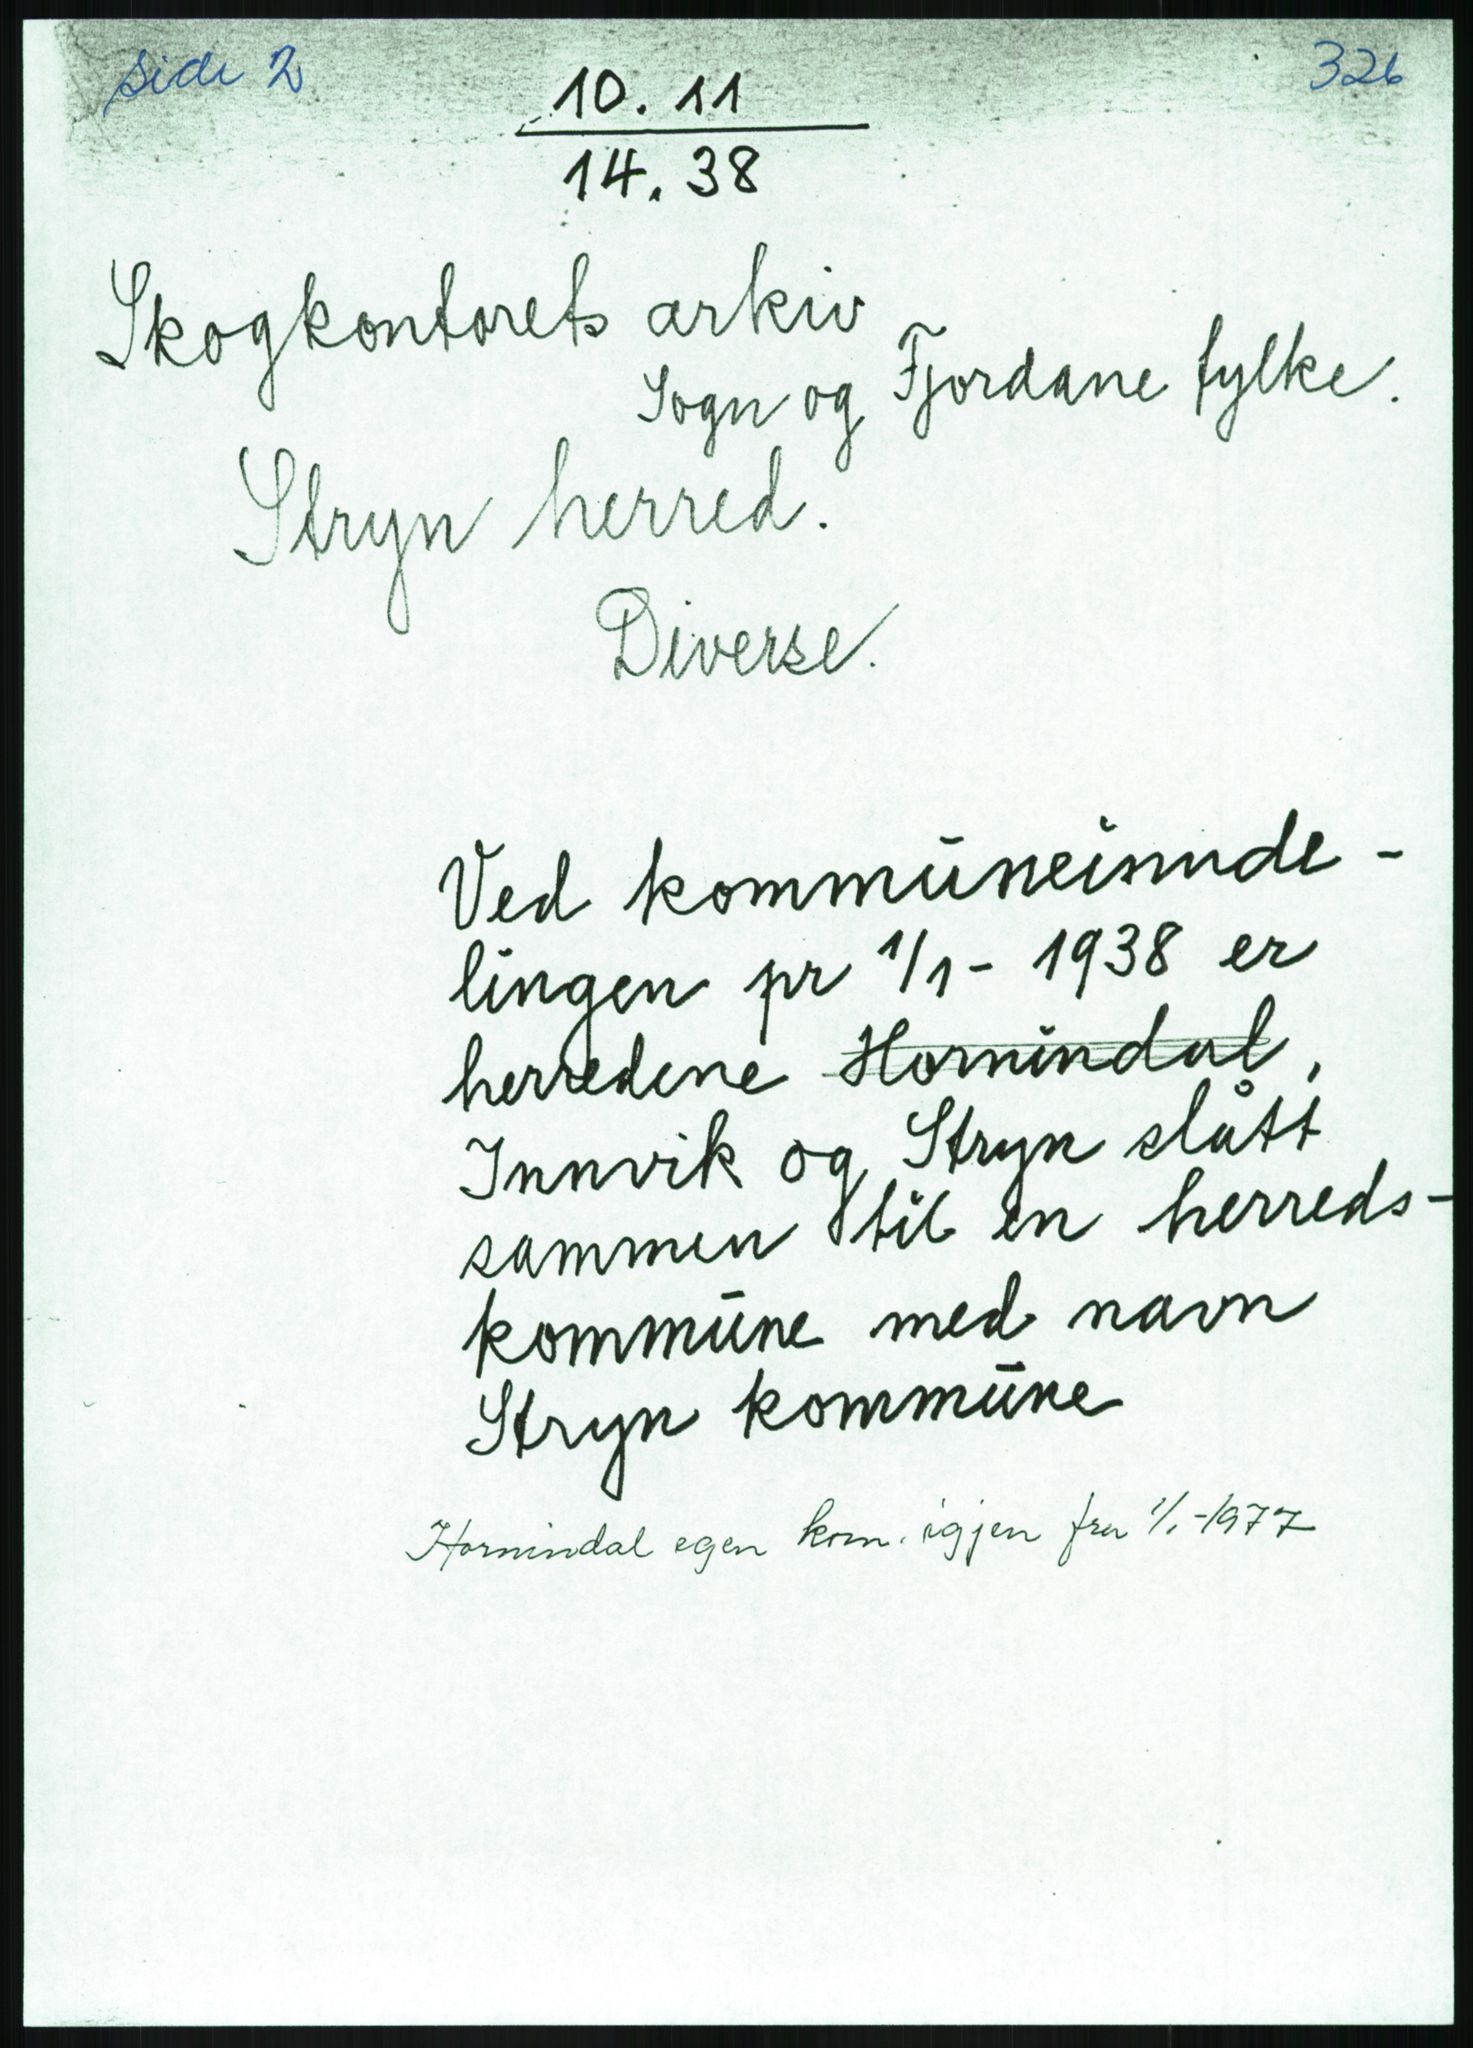 side 2
326
10. 11
14. 38
Skogkontorets arkiv
Sogn og Fjordane fylke.
Stryn herred.
Diverse.
Ved kommuneinnde-
lingen pr 1/1- 1938 er
herredene Hornindal,
Innvik og Stryn slått
sammen til en herreds-
kommune med navn
Stryn kommune
Hornindal egen kom. igjen fra 1/1-1977